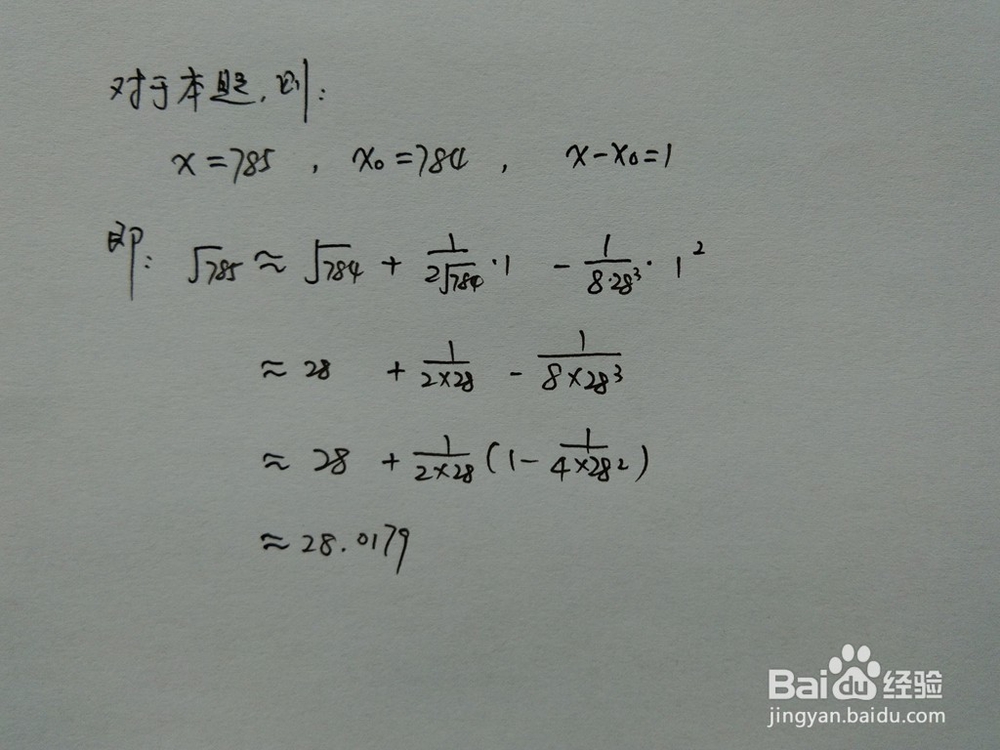 对于本题,则:
x=785 , x₀=784 , x-x₀=1
即: √785 ≈ √784 + 1/(2√784)·1 - 1/(8·28³)·1²
≈ 28 + 1/(2×28) - 1/(8×28³)
≈ 28 + 1/(2×28) (1- 1/(4×28²))
≈ 28.0179
Baidu经验
jingyan.baidu.com